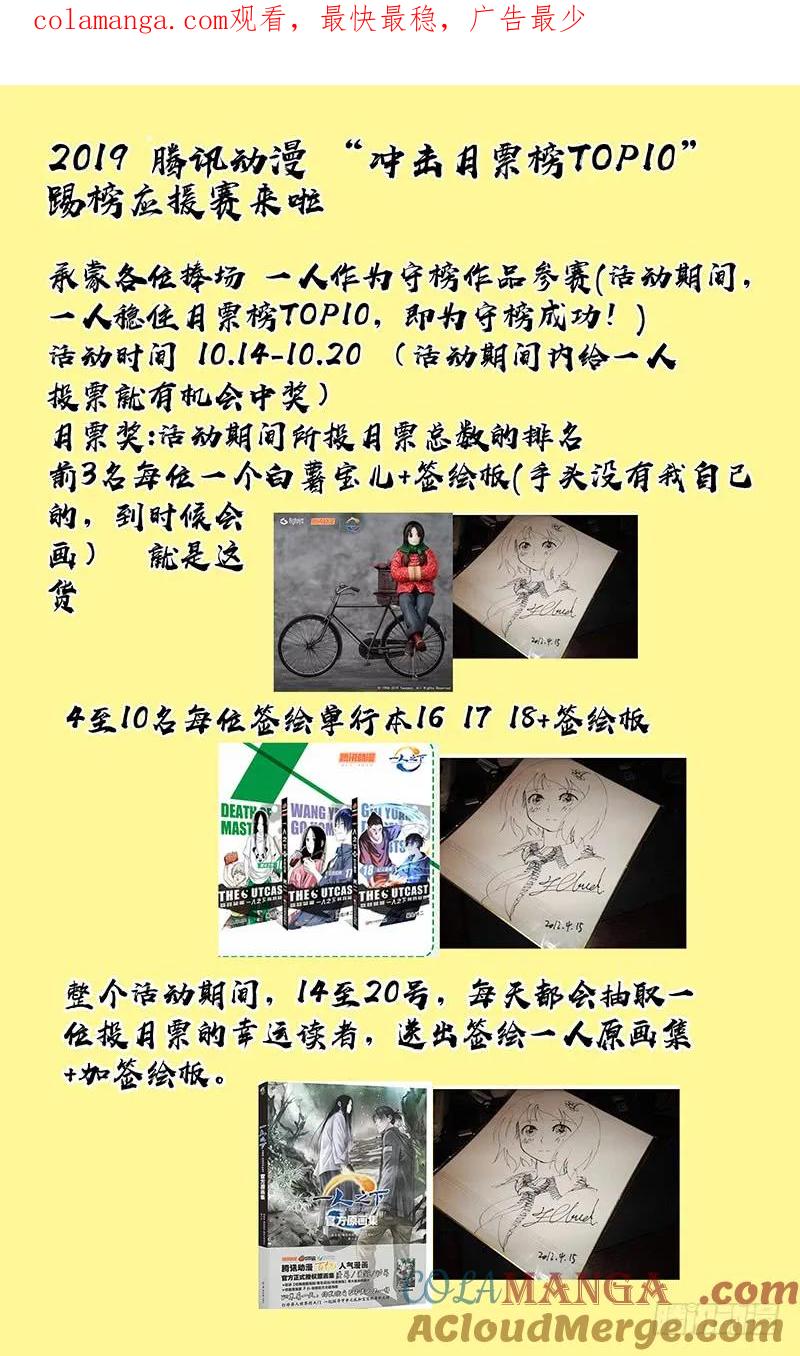 colamanga.com观看，最快最稳，广告最少
2019 腾讯动漫 “冲击月票榜TOP10”
踢榜应援赛来啦
承蒙各位捧场 一人作为守榜作品参赛(活动期间，
一人稳住月票榜TOP10，即为守榜成功！)
活动时间 10.14-10.20 （活动期间内给一人
投票就有机会中奖）
月票奖:活动期间所投月票总数的排名
前3名每位一个白薯宝儿+签绘板(手头没有我自己
的，到时候会
画） 就是这
货
2012.4.15
4至10名每位签绘单行本16 17 18+签绘板
腾讯动漫
一人之下
DEATH OF
MASTE
WANG YE
GO HOME
GUI YUAN
17
18
THE OUTCAST
THE OUTCAST
THE OUTCAST
2012.4.15
整个活动期间，14至20号，每天都会抽取一
位投月票的幸运读者，送出签绘一人原画集
+加签绘板。
一人之下
官方原画集
一人之下
官方原画集
腾讯动漫 人气漫画
2012.4.15
COLAMANGA.COM
ACloudMerge.com